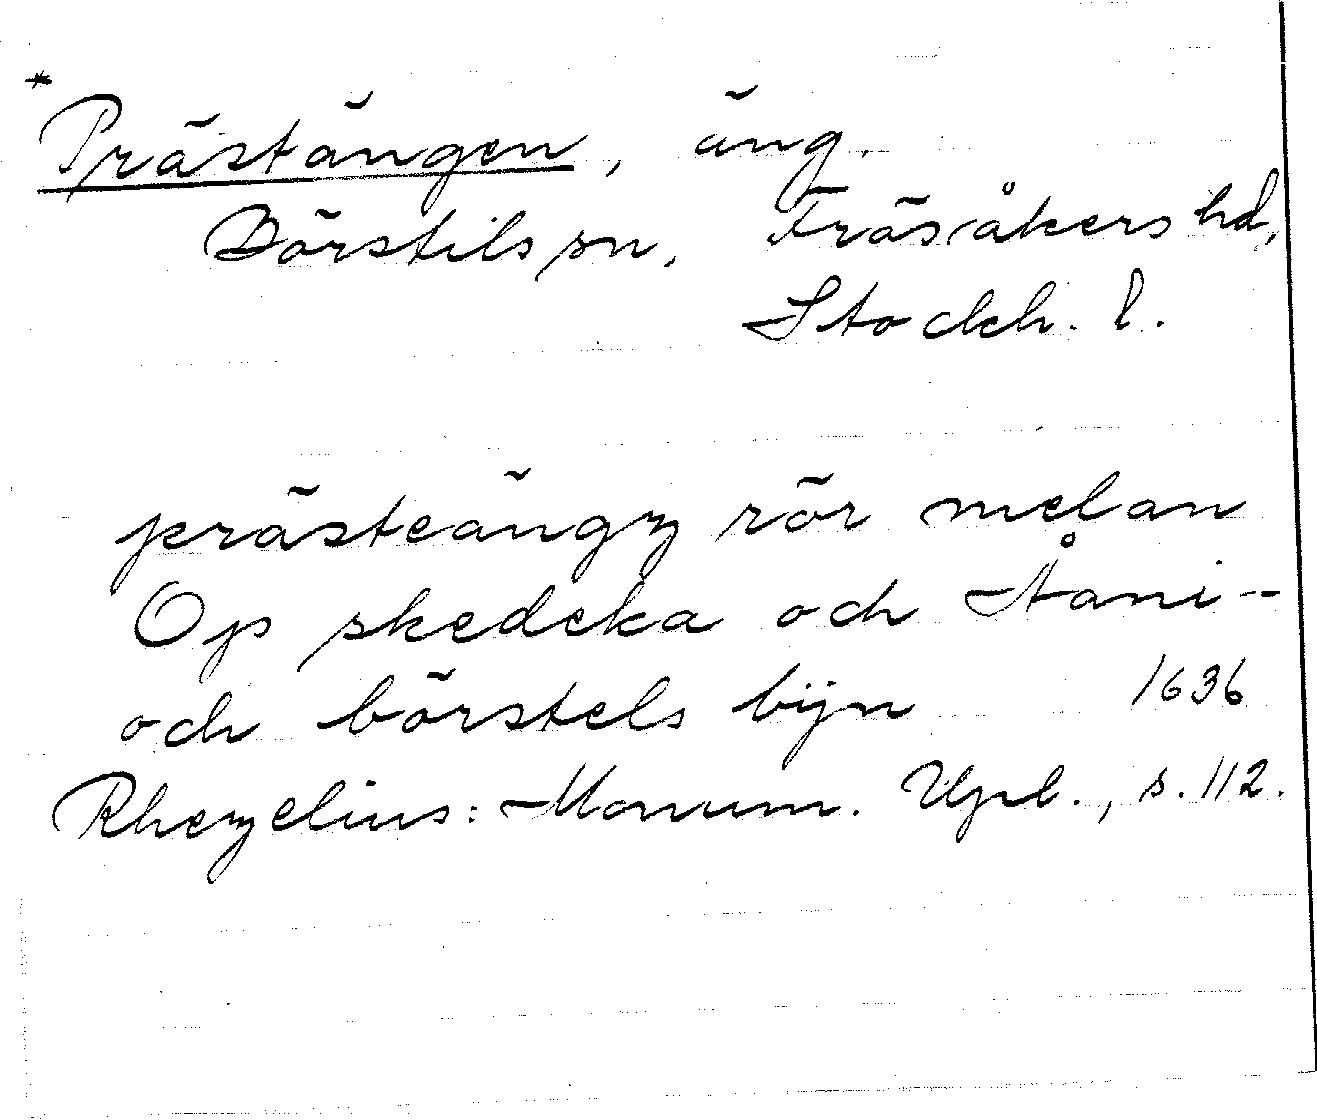 * Prästängen, äng.
Börstils sn, Frösåkers hd,
Stockh. l.
prästeängz rör melan
Op skedeka och Håni-
och börstels bijn 1636
Rhezelius: Monum. Upl., s. 112.